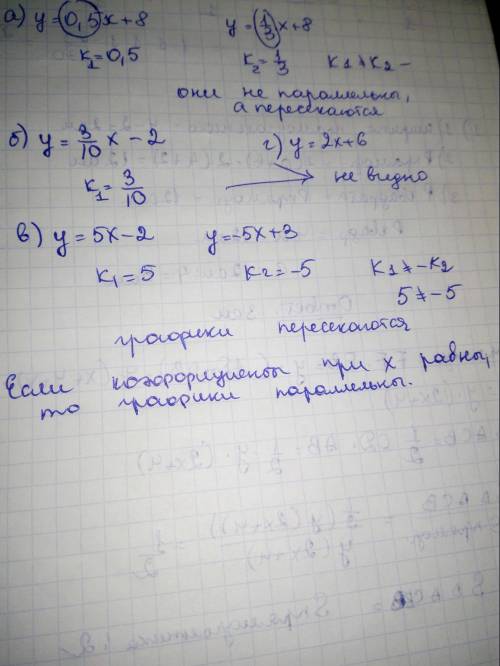 а) y = 0,5x+8 y = 1/3 x+8
k₁=0,5 k₂=1/3 k₁≠k₂ –
они не параллельны,
а пересекаются
б) y = 3/10 x – 2 г) y = 2x+6
k₁ = 3/10 → не видно
в) y = 5x – 2 y=-5x+3
k₁ = 5 k₂ = -5 k₁ ≠ -k₂
5 ≠ -5
графики пересекаются
Если коэффициенты при x равны,
то графики параллельны.